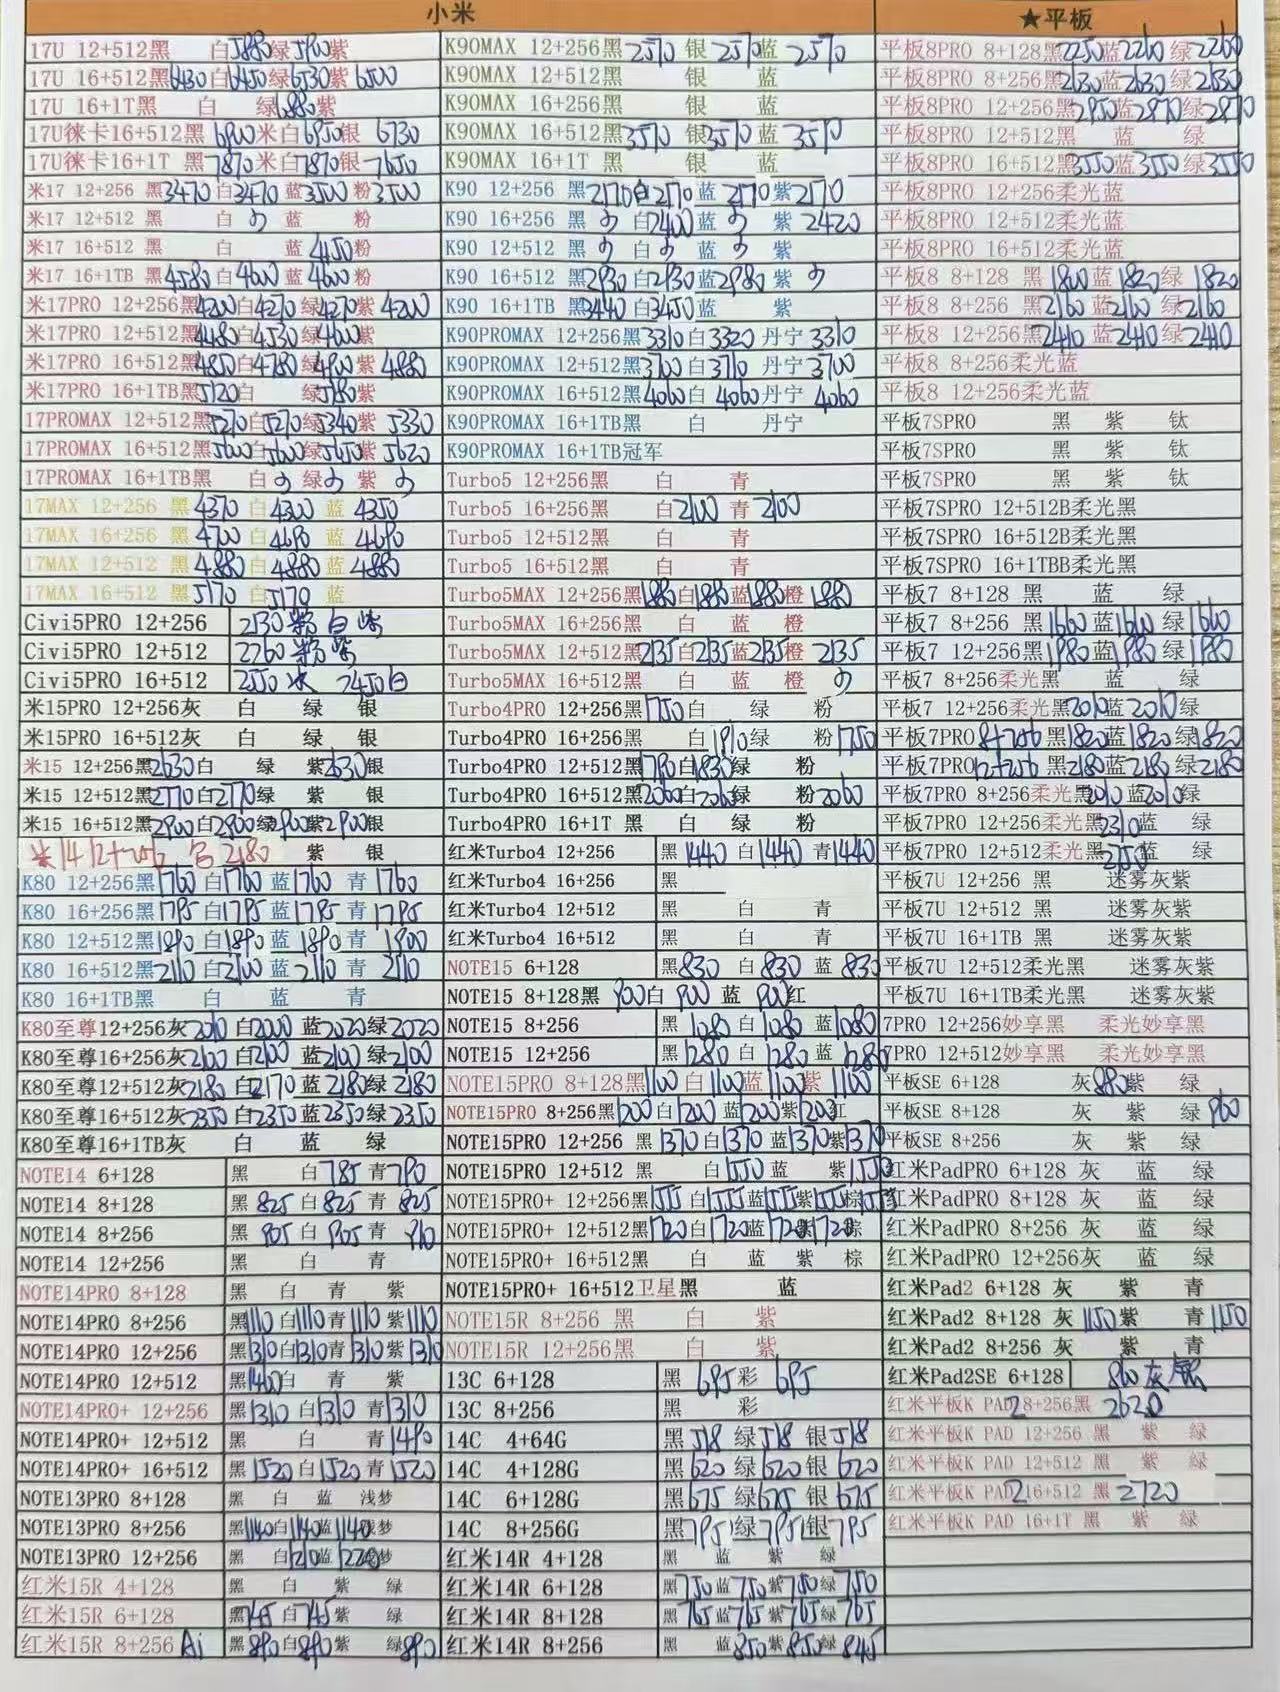 小米
17U 12+512黑 白5880绿5900紫
17U 16+512黑6430白6450绿6530紫 6500
17U 16+1T黑 白 绿6880紫
17U徕卡16+512黑 6900米白6950银 6730
17U徕卡16+1T 黑 7870米白7870银 7650
米17 12+256 黑3470白3470蓝3500粉3500
米17 12+512 黑 白 蓝 粉
米17 16+512 黑 白 蓝4150粉
米17 16+1TB 黑4580白4600蓝4600粉
米17PRO 12+256黑4200白4270绿4270紫 4200
米17PRO 12+512黑4480白4530绿4600紫
米17PRO 16+512黑4850白4780绿4900紫 4880
米17PRO 16+1TB黑5120白 绿5180紫
17PROMAX 12+512黑5270白5270绿5340紫 5330
17PROMAX 16+512黑5600白5600绿5650紫 5620
17PROMAX 16+1TB黑 白 绿 紫
17MAX 12+256 黑 4370 白4300 蓝 4350
17MAX 16+256 黑 4700 白4690 蓝 4690
17MAX 12+512 黑 4880 白4880 蓝 4880
17MAX 16+512 黑 5170 白5170 蓝
Civi5PRO 12+256 2130 粉 白 紫
Civi5PRO 12+512 2260 粉 紫
Civi5PRO 16+512 2550 冰 2450白
米15PRO 12+256灰 白 绿 银
米15PRO 16+512灰 白 绿 银
米15 12+256黑2630白 绿 紫2630银
米15 12+512黑2770白2770绿 紫 银
米15 16+512黑2900白2900绿2900紫2900银
米14 12+256 白 2180 紫 银
K80 12+256黑1760 白1760 蓝1760 青 1760
K80 16+256黑1795 白1795 蓝1795 青 1795
K80 12+512黑1890 白1890 蓝1890 青 1900
K80 16+512黑2110 白2100 蓝2110 青 2110
K80 16+1TB黑 白 蓝 青
K80至尊12+256灰2010 白2000 蓝2020绿2020
K80至尊16+256灰2100 白2100 蓝2100绿2100
K80至尊12+512灰2180 白2170 蓝2180绿 2180
K80至尊16+512灰2350 白2350 蓝2350绿2350
K80至尊16+1TB灰 白 蓝 绿
NOTE14 6+128 黑 白785青790
NOTE14 8+128 黑 825 白 825 青 825
NOTE14 8+256 黑 905 白 905青 910
NOTE14 12+256 黑 白 青
NOTE14PRO 8+128 黑 白 青 紫
NOTE14PRO 8+256 黑1110白1110青1110紫1110
NOTE14PRO 12+256 黑1310白1310青1310紫1310
NOTE14PRO 12+512 黑1460白 青 紫
NOTE14PRO+ 12+256 黑1310 白1310 青1310
NOTE14PRO+ 12+512 黑 白 青1490
NOTE14PRO+ 16+512 黑1520白1520青1520
NOTE13PRO 8+128 黑 白 蓝 浅梦
NOTE13PRO 8+256 黑1140白1140蓝1140浅梦
NOTE13PRO 12+256 黑 白1210蓝1220浅梦
红米15R 4+128 黑 白 紫 绿
红米15R 6+128 黑745白745紫 绿
红米15R 8+256 Ai 黑890白890紫 绿890
K90MAX 12+256黑2570 银 2570蓝 2570
K90MAX 12+512黑 银 蓝
K90MAX 16+256黑 银 蓝
K90MAX 16+512黑3570 银3570蓝 3570
K90MAX 16+1T 黑 银 蓝
K90 12+256 黑2170白2170 蓝 2170紫2170
K90 16+256 黑 白2400蓝 紫 2420
K90 12+512 黑 白 蓝 紫
K90 16+512 黑2930白2930蓝2980紫
K90 16+1TB 黑3440白3450蓝 紫
K90PROMAX 12+256黑3310白3320 丹宁 3310
K90PROMAX 12+512黑3700白3710 丹宁3700
K90PROMAX 16+512黑4060白4060丹宁 4060
K90PROMAX 16+1TB黑 白 丹宁
K90PROMAX 16+1TB冠军
Turbo5 12+256黑 白 青
Turbo5 16+256黑 白2100青 2100
Turbo5 12+512黑 白 青
Turbo5 16+512黑 白 青
Turbo5MAX 12+256黑1880白1880蓝1880橙 1880
Turbo5MAX 16+256黑 白 蓝 橙
Turbo5MAX 12+512黑2135白2135蓝2135橙 2135
Turbo5MAX 16+512黑 白 蓝 橙
Turbo4PRO 12+256黑1750白 绿 粉
Turbo4PRO 16+256黑 白1910绿 粉1750
Turbo4PRO 12+512黑1790白1830绿 粉
Turbo4PRO 16+512黑2060白2060绿 粉2060
Turbo4PRO 16+1T 黑 白 绿 粉
红米Turbo4 12+256 黑 1440 白1440 青1440
红米Turbo4 16+256 黑
红米Turbo4 12+512 黑 白 青
红米Turbo4 16+512 黑 白 青
NOTE15 6+128 黑830 白 830 蓝 830
NOTE15 8+128黑 900白 900 蓝 900红
NOTE15 8+256 黑 1080 白1080 蓝1080
NOTE15 12+256 黑1280 白1280 蓝 1280
NOTE15PRO 8+128黑1100 白1100蓝1100紫1100
NOTE15PRO 8+256黑1200白1200 蓝1200紫1200红
NOTE15PRO 12+256 黑 1370白1370 蓝1370紫1370
NOTE15PRO 12+512 黑 白1550蓝 紫1550
NOTE15PRO+ 12+256黑1555白1555蓝1555紫1555棕1555
NOTE15PRO+ 12+512黑1720白1720蓝1720紫1720棕
NOTE15PRO+ 16+512黑 白 蓝 紫 棕
NOTE15PRO+ 16+512卫星黑 蓝
NOTE15R 8+256 黑 白 紫
NOTE15R 12+256黑 白 紫
13C 6+128 黑 695彩 695
13C 8+256 黑 彩
14C 4+64G 黑518 绿518 银518
14C 4+128G 黑620 绿620 银 620
14C 6+128G 黑675 绿675 银 675
14C 8+256G 黑795绿795银795
红米14R 4+128 黑 蓝 紫 绿
红米14R 6+128 黑750蓝750紫750绿 750
红米14R 8+128 黑765蓝765紫765绿765
红米14R 8+256 黑 蓝850紫850绿 845
★平板
平板8PRO 8+128黑2250蓝2260 绿 2260
平板8PRO 8+256黑2630蓝2630 绿 2630
平板8PRO 12+256黑2850蓝2870绿2870
平板8PRO 12+512黑 蓝 绿
平板8PRO 16+512黑3550蓝3550绿3550
平板8PRO 12+256柔光蓝
平板8PRO 12+512柔光蓝
平板8PRO 16+512柔光蓝
平板8 8+128 黑 1800蓝1820绿 1820
平板8 8+256 黑2160蓝2160 绿2160
平板8 12+256黑2410 蓝2410绿2410
平板8 8+256柔光蓝
平板8 12+256柔光蓝
平板7SPRO 黑 紫 钛
平板7SPRO 黑 紫 钛
平板7SPRO 黑 紫 钛
平板7SPRO 12+512B柔光黑
平板7SPRO 16+512B柔光黑
平板7SPRO 16+1TBB柔光黑
平板7 8+128 黑 蓝 绿
平板7 8+256 黑1660蓝1660 绿1660
平板7 12+256黑1980蓝1980绿1980
平板7 8+256柔光黑 蓝 绿
平板7 12+256柔光黑2010蓝 2010绿
平板7PRO 8+256 黑1820蓝1820 绿1820
平板7PRO12+256 黑2180蓝2180 绿2180
平板7PRO 8+256柔光黑2010蓝2010绿
平板7PRO 12+256柔光黑2310蓝 绿
平板7PRO 12+512柔光黑2550蓝 绿
平板7U 12+256 黑 迷雾灰紫
平板7U 12+512 黑 迷雾灰紫
平板7U 16+1TB 黑 迷雾灰紫
平板7U 12+512柔光黑 迷雾灰紫
平板7U 16+1TB柔光黑 迷雾灰紫
7PRO 12+256妙享黑 柔光妙享黑
7PRO 12+512妙享黑 柔光妙享黑
平板SE 6+128 灰880紫 绿
平板SE 8+128 灰 紫 绿960
平板SE 8+256 灰 紫 绿
红米PadPRO 6+128 灰 蓝 绿
红米PadPRO 8+128 灰 蓝 绿
红米PadPRO 8+256 灰 蓝 绿
红米PadPRO 12+256灰 蓝 绿
红米Pad2 6+128 灰 紫 青
红米Pad2 8+128 灰 1150紫 青1150
红米Pad2 8+256 灰 紫 青
红米Pad2SE 6+128 860 灰 银
红米平板K PAD2 8+256黑 2620
红米平板K PAD 12+256 黑 紫 绿
红米平板K PAD 12+512 黑 紫 绿
红米平板K PAD216+512 黑 2720
红米平板K PAD 16+1T 黑 紫 绿